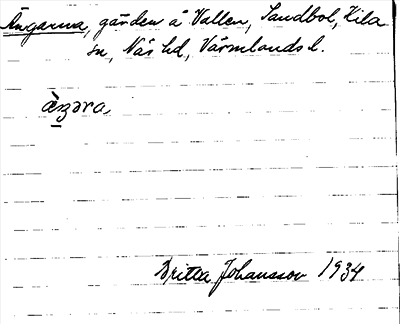 Ängarna, gården å Vallen, Sandbol, Kila
sn, Näs hd, Värmlands l.
Britta Johansson 1934